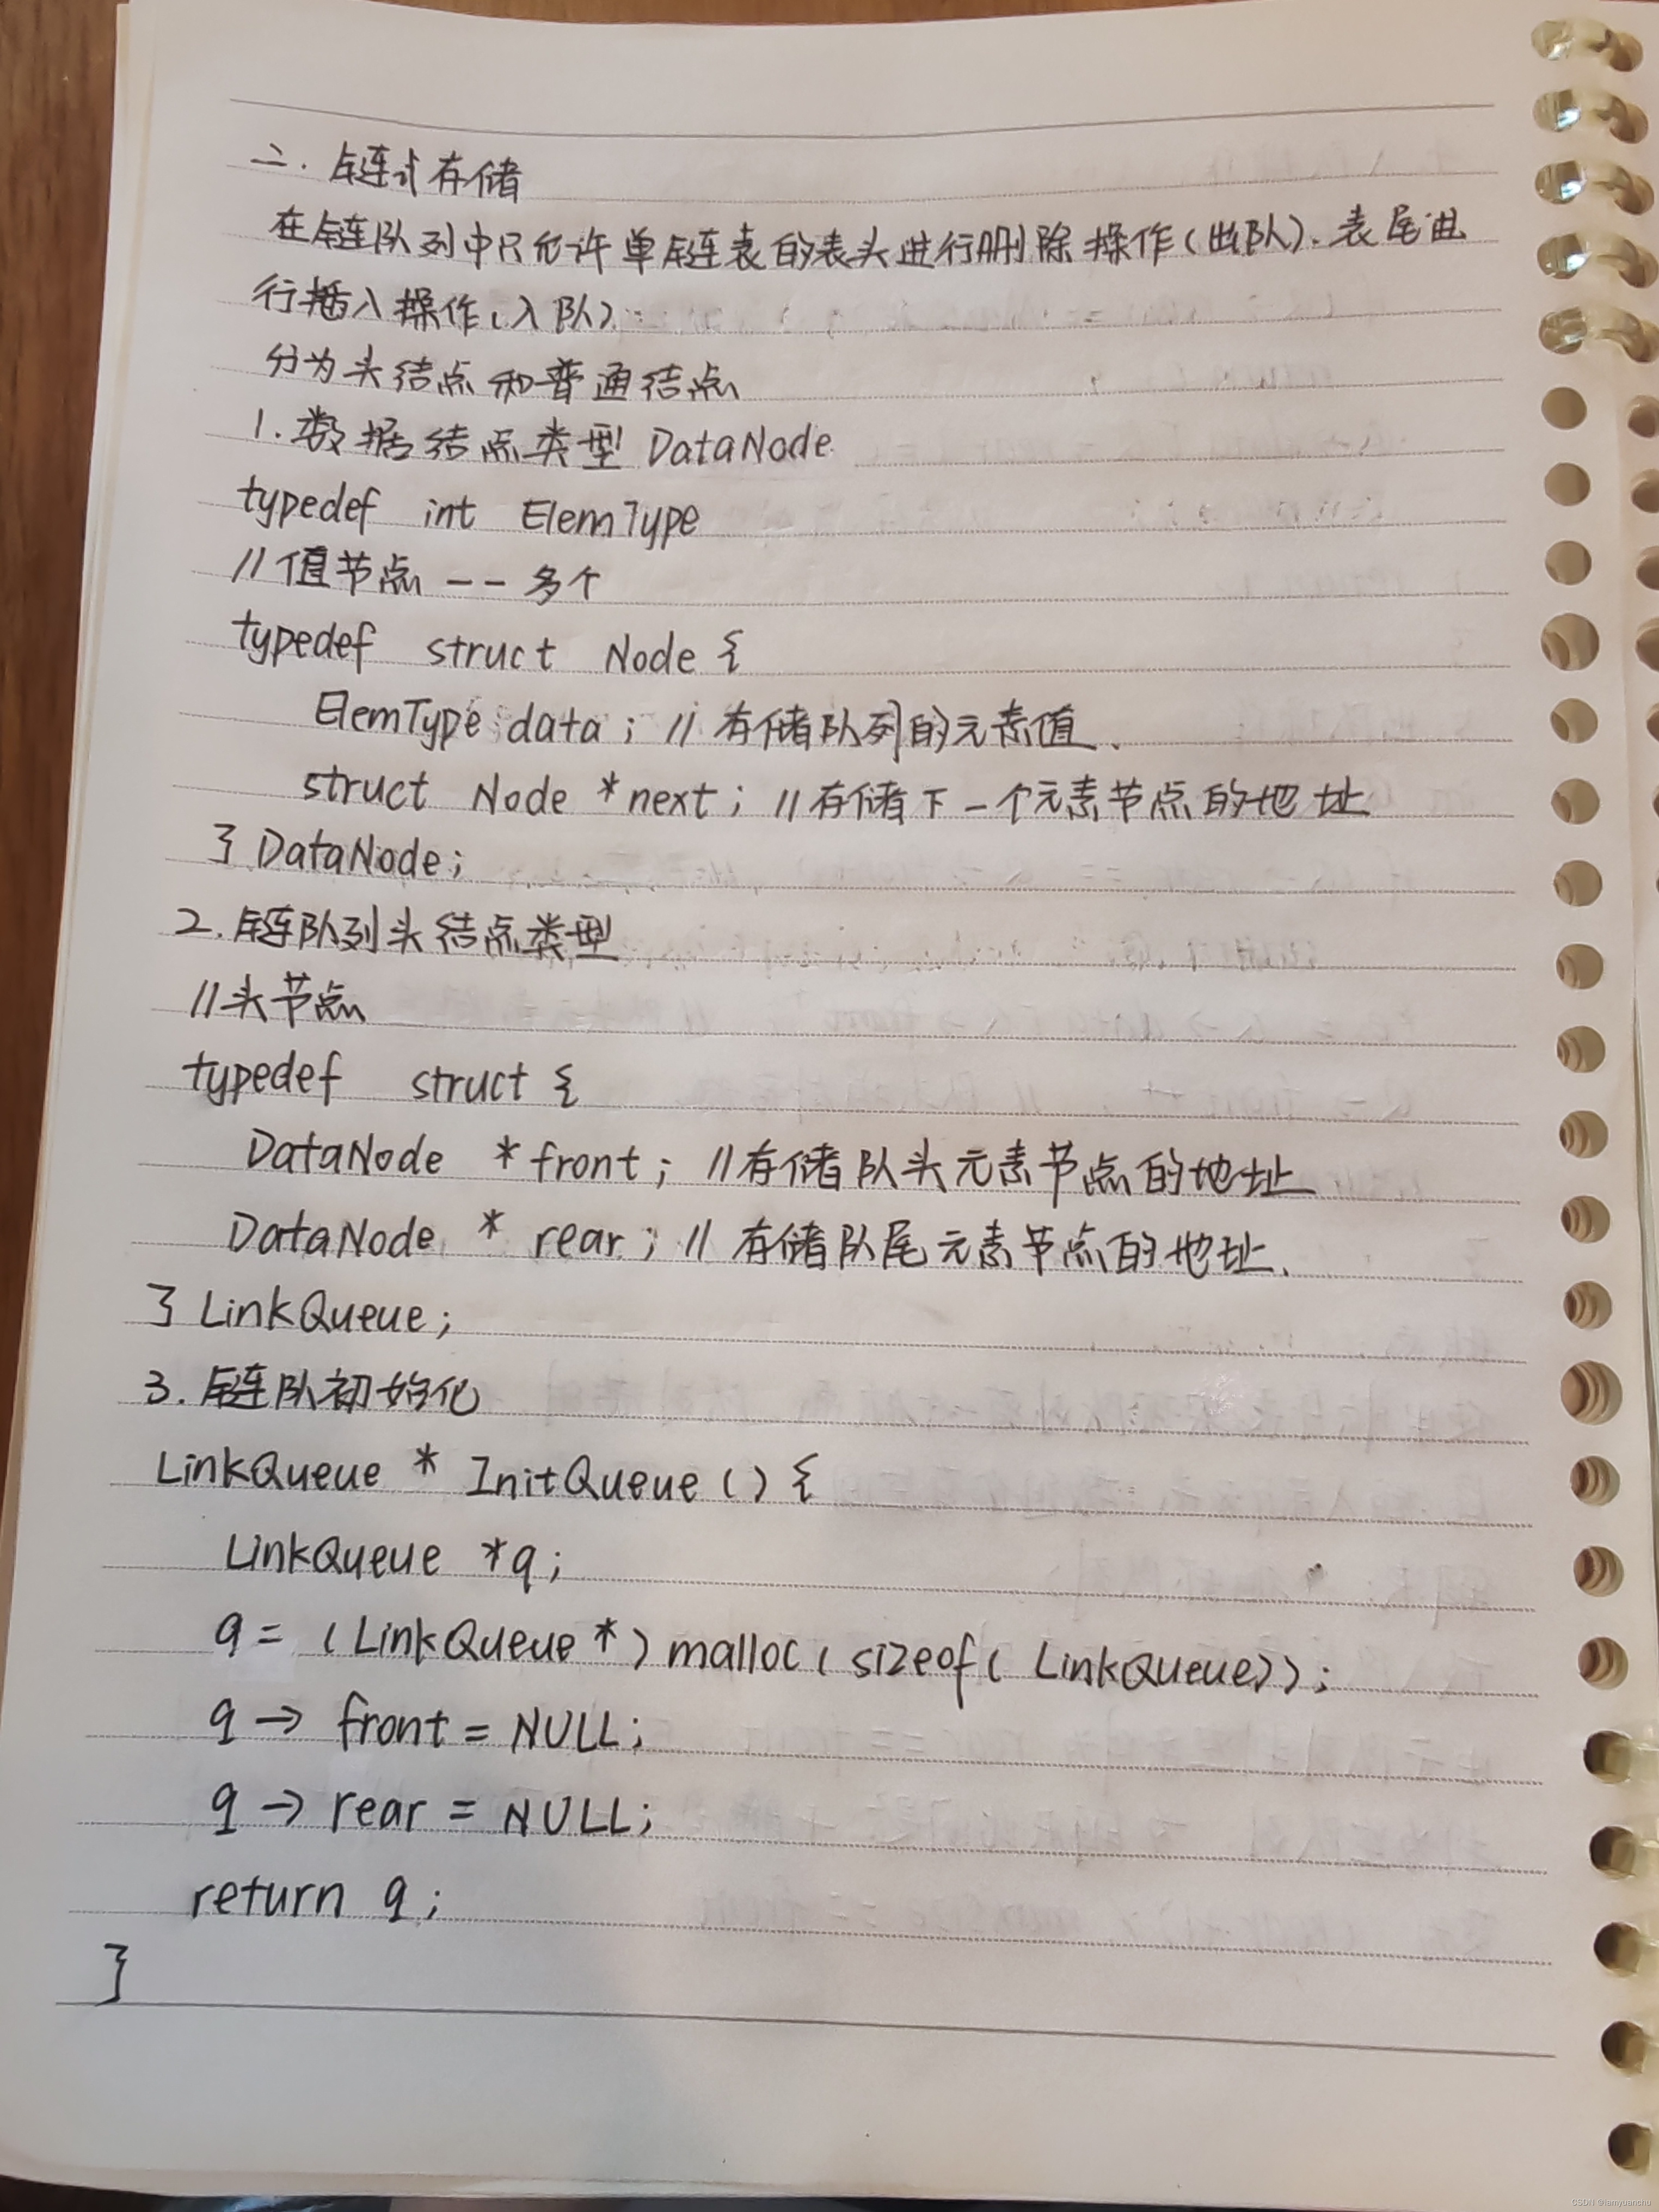 二.链式存储
在链队列中只允许单链表的表头进行删除操作(出队)、表尾进
行插入操作(入队)
分为头结点和普通结点
1.数据结点类型 DataNode
typedef int ElemType
//值节点 -- 多个
typedef struct Node {
ElemType data; // 存储队列的元素值、
struct Node *next; //存储下一个元素节点的地址
} DataNode;
2.链队列头结点类型
//头节点
typedef struct {
DataNode *front; //存储队头元素节点的地址
DataNode * rear; // 存储队尾元素节点的地址、
} LinkQueue;
3.链队初始化
LinkQueue * InitQueue () {
LinkQueue *q;
q = (LinkQueue *) malloc( sizeof( LinkQueue));
q -> front = NULL;
q -> rear = NULL;
return q;
}
CSDN @iamyuanchu